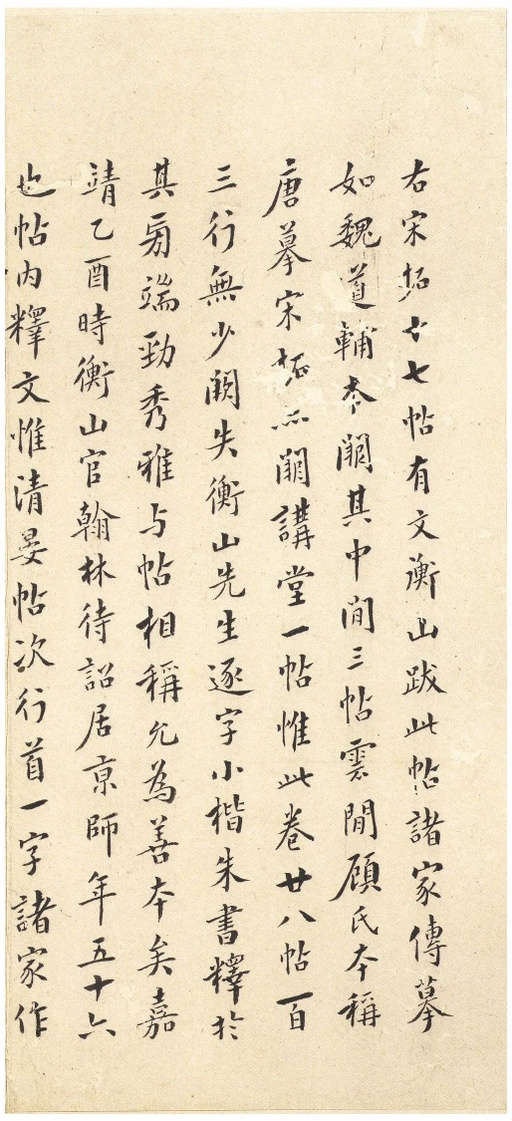 右宋拓十七帖有文衡山跋此帖諸家傳摹
如魏道輔本闕其中間三帖雲間顧氏本稱
唐摹宋拓亦闕講堂一帖惟此卷廿八帖一百
三行無少闕失衡山先生逐字小楷朱書釋於
其旁端勁秀雅与帖相稱允為善本矣嘉
靖乙酉時衡山官翰林待詔居京師年五十六
也帖內釋文惟清晏帖次行首一字諸家作